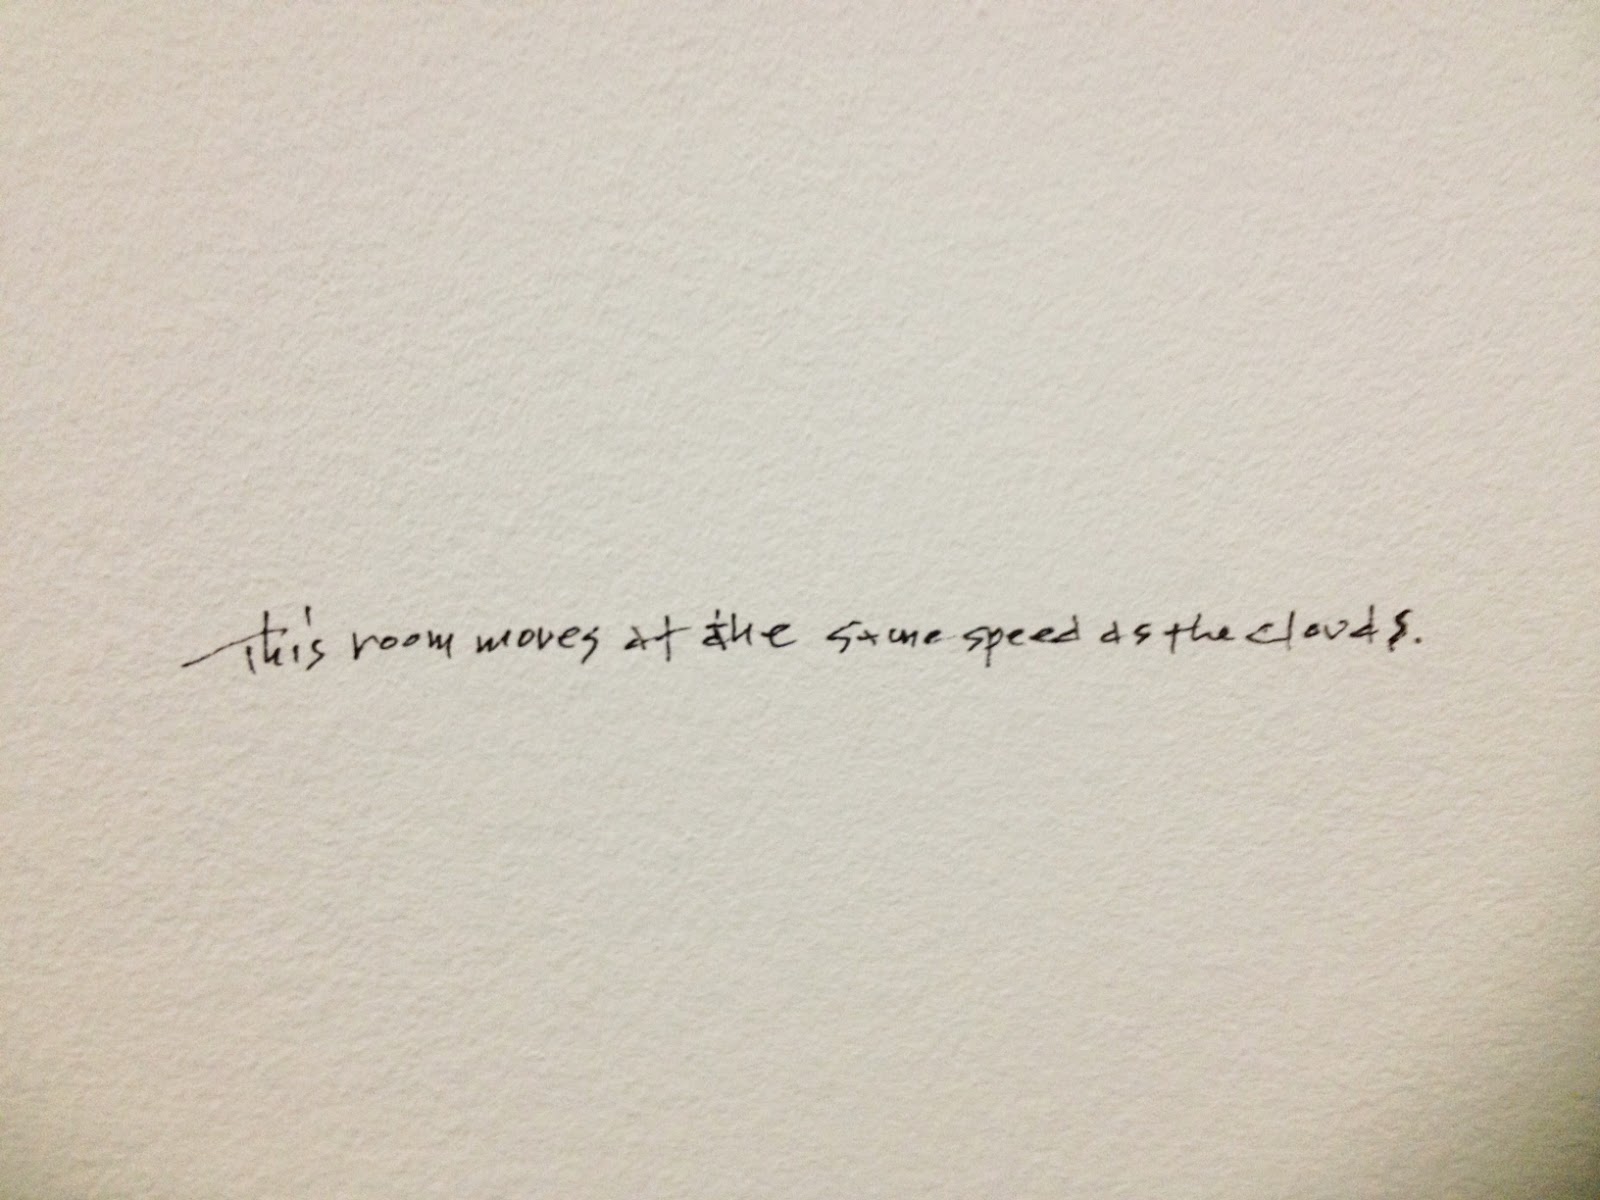 This room moves at the same speed as the clouds.